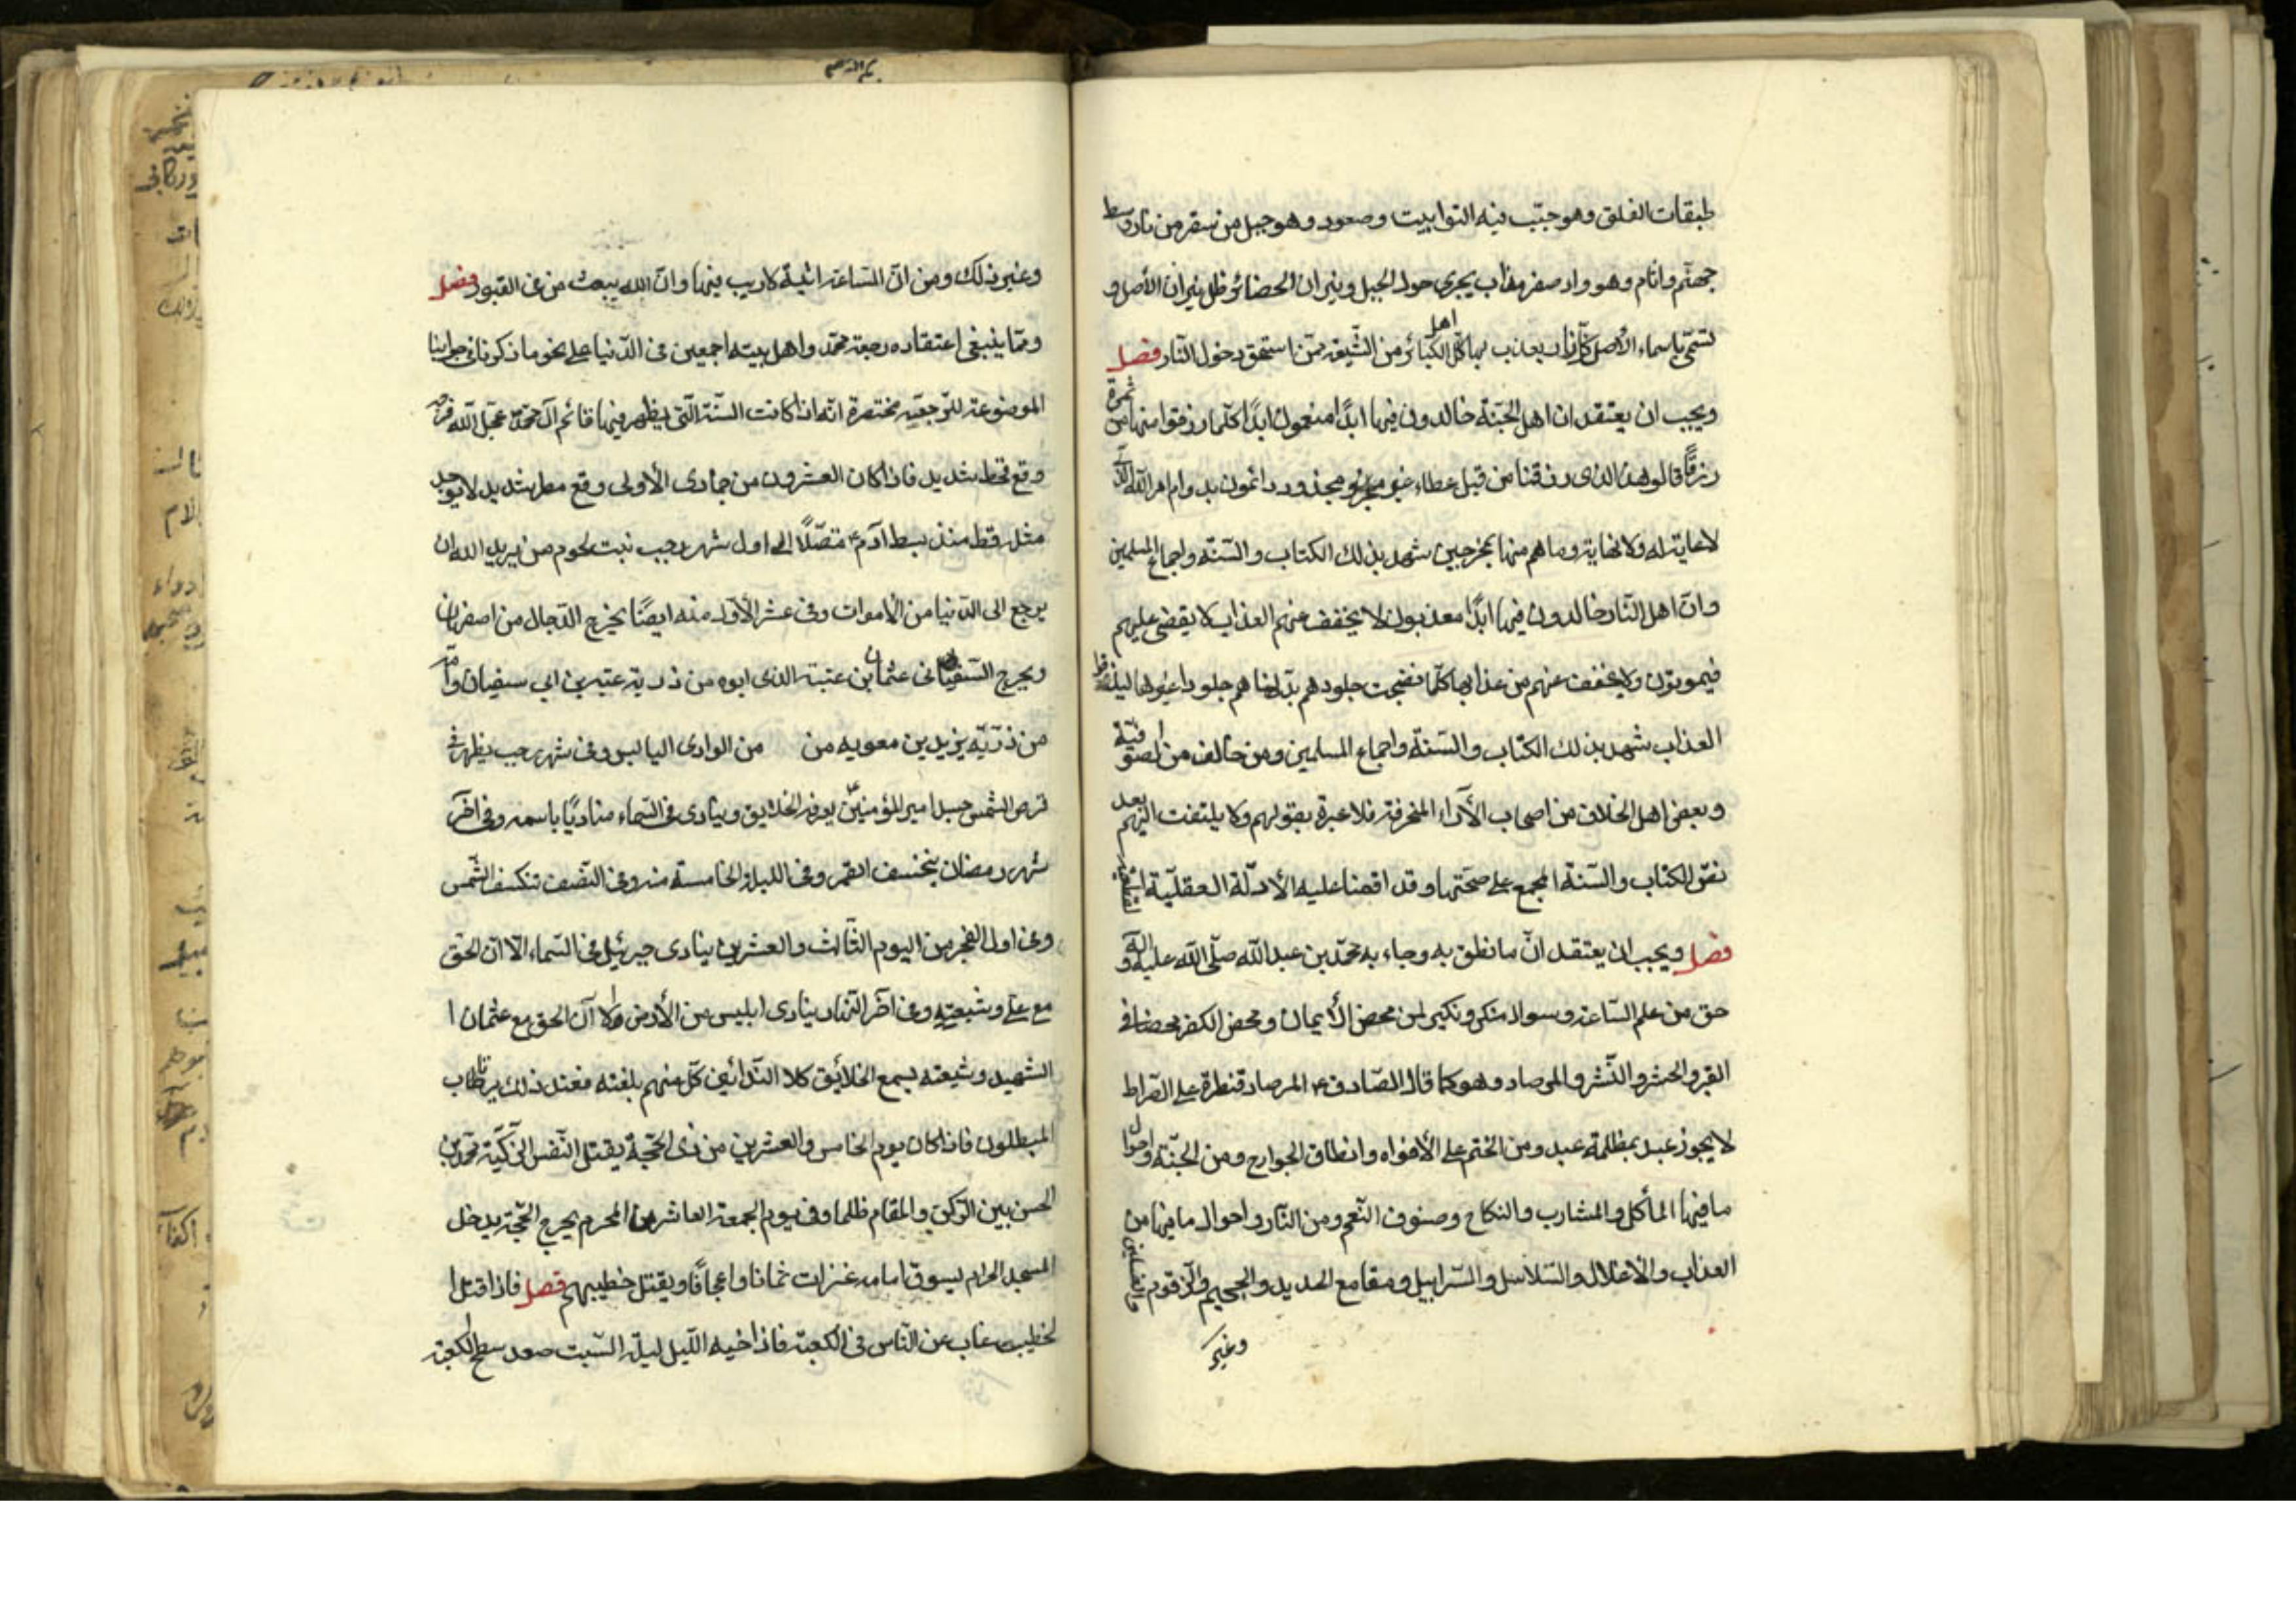 طبقات الفلق وهو جبّ فيه التوابيت وصعود وهو جبل من سقر من نار وسط
جهنّم واثام وهو واد صفر مذاب يجرى حول الجبل ونيران الحضائر ظل نيران الأصل و
تسمّى باسماء الأصل كلّ نار يعذب بها اهل الكبائر من الشّيعة ممّن استحق دخول النّار فصل
ويجب ان يعتقد ان اهل الجنّة خالدون فيها ابدًا منعمون ابدًا كلّما رزقوا منها من ثمرة
رزقًا قالوا هذا الذى رزقنا من قبل عطاء غير مجذوذ دائمون بدوام امر الله الذى
لا غاية له ولا نهاية وما هم منها بمخرجين شهد بذلك الكتاب والسّنّة واجماع المسلمين
وانّ اهل النّار خالدون فيها ابدًا معذبون لا يخفف عنهم العذاب لا يقضى عليهم
فيموتون ولا يخفف عنهم من عذابها كلّما نضجت جلودهم بدّلناهم جلودا غيرها ليذوقوا
العذاب شهد بذلك الكتاب والسّنة واجماع المسلمين ومن خالف من الصّوفيّة
وبعض اهل الخلاف من اصحاب الآراء المنحرفة فلا عبرة بقولهم ولا يلتفت اليهم بعد
نصّ الكتاب والسّنة المجمع على صحّتها وقد اقمنا عليه الأدلّة العقليّة
فصل ويجب ان يعتقد انّ ما نطق به وجاء به محمّد بن عبد اللّه صلّى اللّه عليه وآله
حق من علم السّاعة وسوال منكر ونكير لمن محض الأيمان ومحض الكفر محضا فى
القبر والحشر والنّشر والمرصاد وهو كما قال الصّادق ع المرصاد قنطرة على الصّراط
لا يجوز عبد بمظلمة عبد ومن الختم على الأفواه وانطاق الجوارح ومن الجنّة واحوال
ما فيها المأكل والمشارب والنكاح وصنوف النّعم ومن النّار واحوال ما فيها من
العذاب والأغلال والسّلاسل والسّرابيل ومقامع الحديد والحميم والزّقوم وغسلين
وغير
وغير ذلك ومن انّ السّاعة اتية لا ريب فيها وانّ الله يبعث من فى القبور فصل
وممّا ينبغى اعتقاده رجعة محمّد واهل بيته اجمعين فى الدّنيا على نحو ما ذكرنا فى جوابنا
الموضوعة للرّجعة مختصرة انّه اذا كانت السّنة الّتى يظهر فيها قائم آل محمّد عجّل اللّه فرجه
وقع قحط شديد فاذا كان العشرون من جمادى الأولى وقع مطر شديد لا يوجد
مثله قط منذ هبط آدم ع متصّلًا الى اول شهر رجب نبت لحوم من يريد اللّه ان
يرجع الى الدّنيا من الأموات وفى عشر الأوّل منه ايضًا يخرج الدّجال من اصفهان
ويخرج السّفيانى عثمان بن عتبة الذى ابوه من ذرية عتبة بن ابى سفيان وامّه
من ذرّيّة يزيد بن معويه من من الوادى اليابس وفى شهر رجب يظهر فى
قرص الشّمس جسد امير المؤمنين ع يعرفه الخلايق وينادى فى السّماء مناديًا باسمه وفى آخر
شهر رمضان ينخسف القمر وفى الليلة الخامسة منه وفى النّصف تنكسف الشّمس
وفى اول الفجر من اليوم الثّالث والعشرين ينادى جبرئيل فى السّماء الا انّ الحق
مع علىّ وشيعته وفى آخر النّهار ينادى ابليس من الأرض الا انّ الحق مع عثمان ا
الشّهيد وشيعته يسمع الخلائق كلا النّدائين كلّ منهم بلغته فعند ذلك يرتاب
المبطلون فاذا كان يوم الخامس والعشرين من ذى الحجّة يقتل النّفس الزّكيّة محمّد بن
الحسن بين الرّكن والمقام ظلما وفى يوم الجمعة العاشر من المحرّم يخرج الحجّة يدخل
المسجد الحرام يسوق امامه عنزات ثمانا واعجافًا ويقتل خطيبهم فصل فاذا قتل ا
لخطيب غاب عن النّاس فى الكعبة فاذا اخيه الّليل ليلة السّبت صعد سطح الكعبة